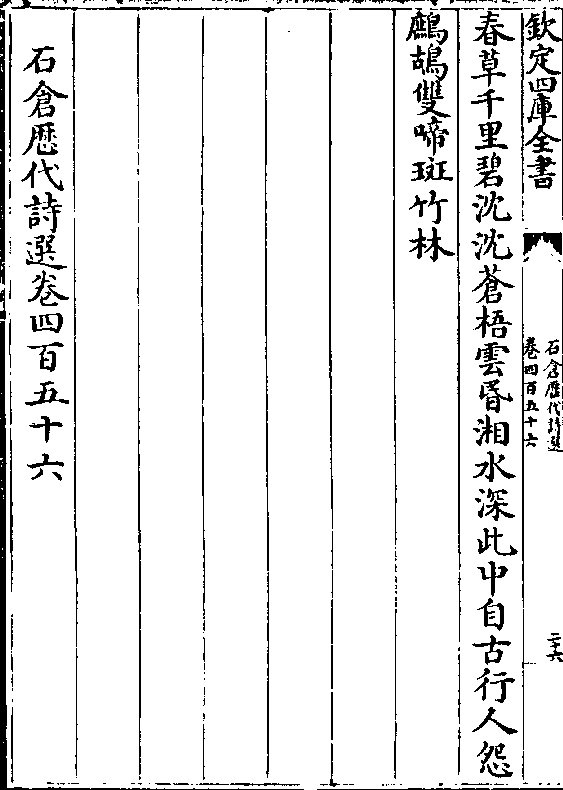 欽定四庫全書
石倉歷代詩選
卷四百五十六
二十六
春草千里碧沈沈蒼梧雲昏湘水深此中自古行人怨
鷓鴣雙啼斑竹林
石倉歷代詩選卷四百五十六